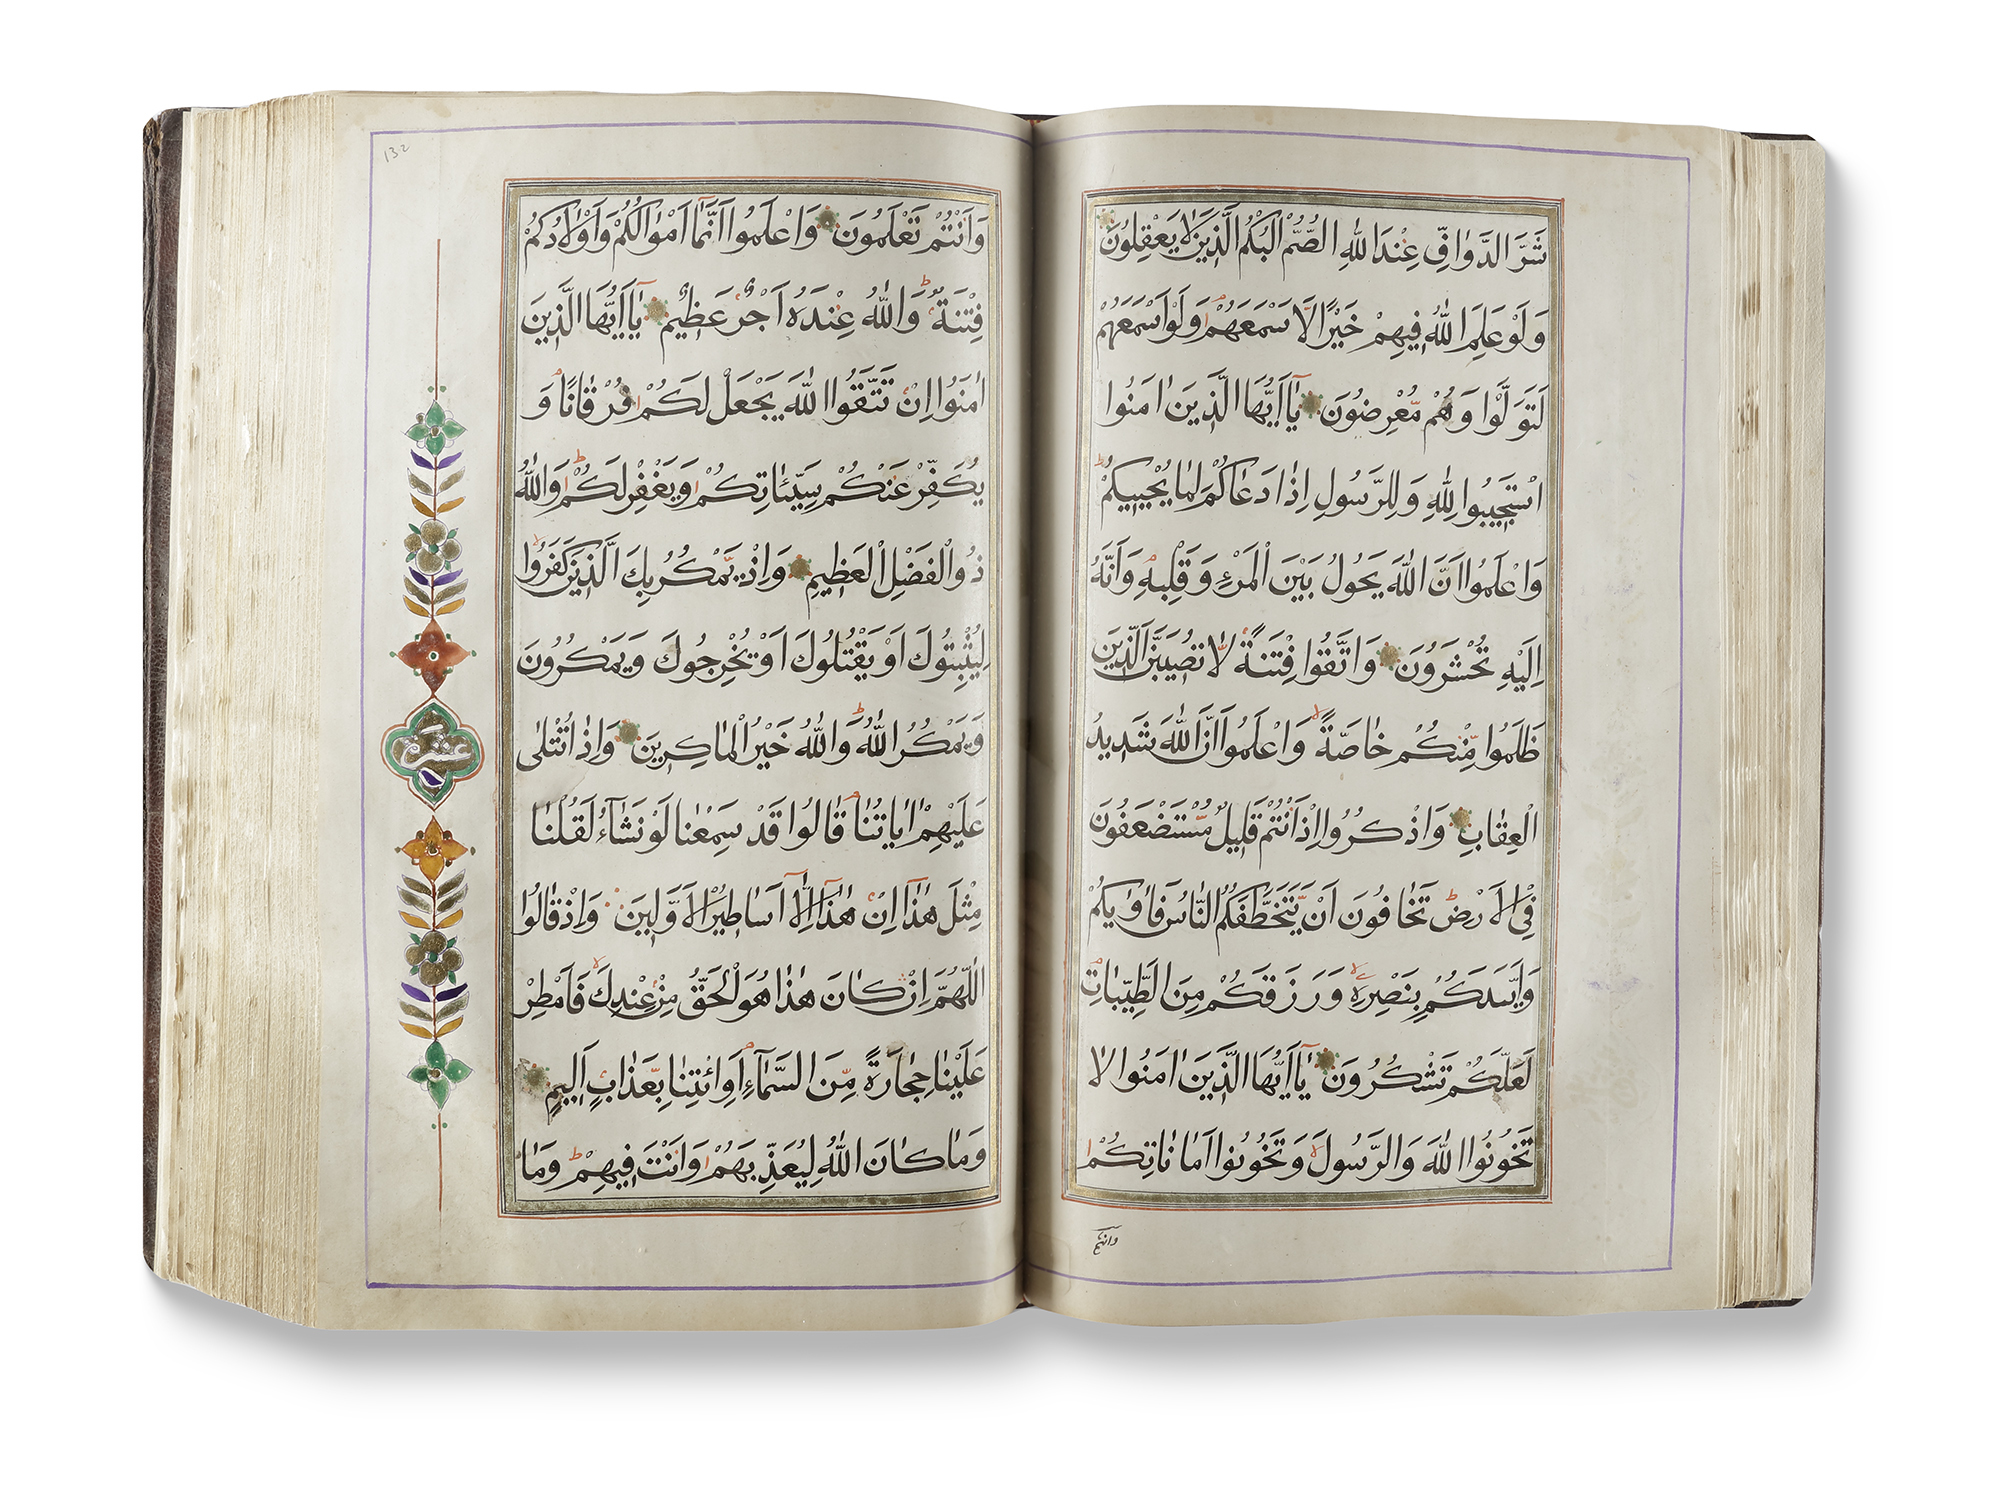 شَرَّ الدَّوَآبِّ عِنْدَ اللهِ الصُّمُّ الْبُكْمُ الَّذِينَ لَا يَعْقِلُونَ
وَلَوْ عَلِمَ اللهُ فِيهِمْ خَيْرًا لَاَسْمَعَهُمْ وَلَوْ اَسْمَعَهُمْ
لَتَوَلَّوْا وَهُمْ مُعْرِضُونَ يَآ اَيُّهَا الَّذِينَ اٰمَنُوا
اسْتَجِيبُوا لِلّٰهِ وَلِلرَّسُولِ اِذَا دَعَاكُمْ لِمَا يُحْيِيكُمْ
وَاعْلَمُوا اَنَّ اللهَ يَحُولُ بَيْنَ الْمَرْءِ وَقَلْبِهِ وَاَنَّهُ
اِلَيْهِ تُحْشَرُونَ وَاتَّقُوا فِتْنَةً لَا تُصِيبَنَّ الَّذِينَ
ظَلَمُوا مِنْكُمْ خَاصَّةً وَاعْلَمُوا اَنَّ اللهَ شَدِيدُ
الْعِقَابِ وَاذْكُرُوا اِذْ اَنْتُمْ قَلِيلٌ مُسْتَضْعَفُونَ
فِي الْاَرْضِ تَخَافُونَ اَنْ يَتَخَطَّفَكُمُ النَّاسُ فَاٰوٰيكُمْ
وَاَيَّدَكُمْ بِنَصْرِهِ وَرَزَقَكُمْ مِنَ الطَّيِّبَاتِ
لَعَلَّكُمْ تَشْكُرُونَ يَآ اَيُّهَا الَّذِينَ اٰمَنُوا لَا
تَخُونُوا اللهَ وَالرَّسُولَ وَتَخُونُوا اَمَانَاتِكُمْ
وانتم
132
وَاَنْتُمْ تَعْلَمُونَ وَاعْلَمُوا اَنَّمَا اَمْوَالُكُمْ وَاَوْلَادُكُمْ
فِتْنَةٌ وَاللهُ عِنْدَهُ اَجْرٌ عَظِيمٌ يَآ اَيُّهَا الَّذِينَ
اٰمَنُوا اِنْ تَتَّقُوا اللهَ يَجْعَلْ لَكُمْ فُرْقَانًا وَ
يُكَفِّرْ عَنْكُمْ سَيِّئَاتِكُمْ وَيَغْفِرْ لَكُمْ وَاللهُ
ذُو الْفَضْلِ الْعَظِيمِ وَاِذْ يَمْكُرُ بِكَ الَّذِينَ كَفَرُوا
لِيُثْبِتُوكَ اَوْ يَقْتُلُوكَ اَوْ يُخْرِجُوكَ وَيَمْكُرُونَ
وَيَمْكُرُ اللهُ وَاللهُ خَيْرُ الْمَاكِرِينَ وَاِذَا تُتْلٰى
عَلَيْهِمْ اٰيَاتُنَا قَالُوا قَدْ سَمِعْنَا لَوْ نَشَآءُ لَقُلْنَا
مِثْلَ هٰذَا اِنْ هٰذَا اِلَّا اَسَاطِيرُ الْاَوَّلِينَ وَاِذْ قَالُوا
اللّٰهُمَّ اِنْ كَانَ هٰذَا هُوَ الْحَقَّ مِنْ عِنْدِكَ فَاَمْطِرْ
عَلَيْنَا حِجَارَةً مِنَ السَّمَآءِ اَوِ ائْتِنَا بِعَذَابٍ اَلِيمٍ
وَمَا كَانَ اللهُ لِيُعَذِّبَهُمْ وَاَنْتَ فِيهِمْ وَمَا
عشر